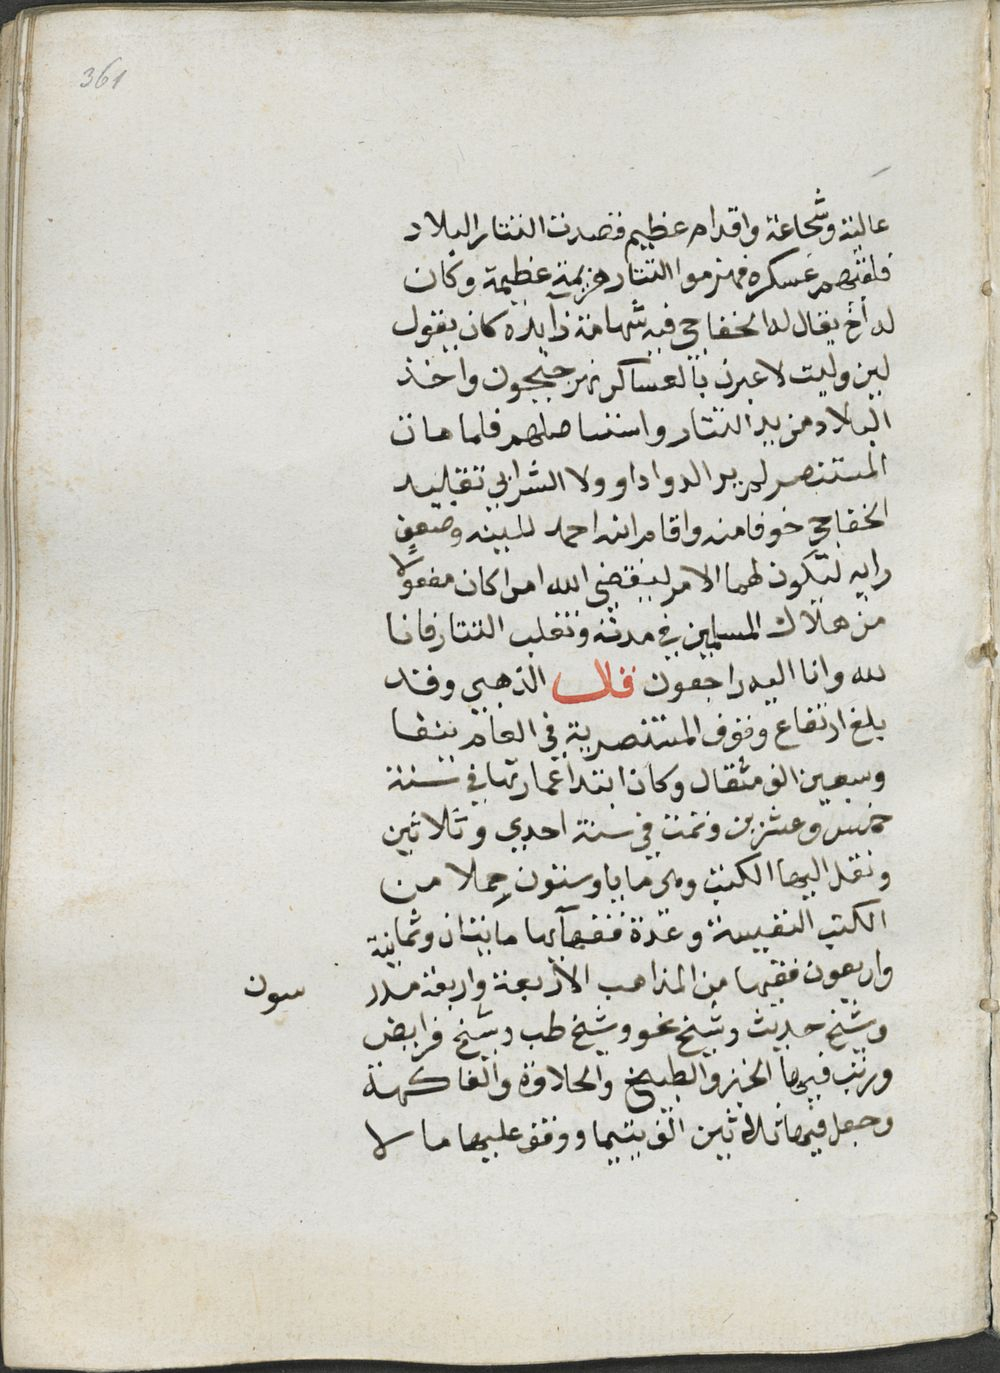 361
عالية وشجاعة واقدام عظيم فقصدت التتار البلاد
فلقيهم عسكره فهزموا التتار هزيمة عظيمة وكان
له أخ يقال له الخفاجي فيه شهامة زايده كان يقول
لين وليت لاعبرن بالعساكر نهر جيجون واخذ
البلاد من يد التتار واستاصلهم فلما مات
المستنصر لم ير الدوادار ولا الشرابي تقليد
الخفاجي خوفا منه واقام ابنه احمد للينه وضعف
رايه ليكون لهما الامر ليقضي الله امرا كان مفعولا
من هلاك المسلمين في مدته وتغلب التتار فانا
لله وانا اليه راجعون قال الذهبي وقد
بلغ ارتفاع وقوف المستنصرية في العام نيفا
وسبعين الف مثقال وكان ابتدا عمارتها في سنة
خمس وعشرين وتمت في سنة احدي وثلاثين
ونقل اليها الكتب وهي ماية وستون حملا من
الكتب النفيسة وعدة فقهآيها مايتان وثمانية
واربعون فقيها من المذاهب الاربعة واربعة مدر سون
وشيخ حديث وشيخ نحو وشيخ طب وشيخ فرايض
ورتب فيها الخبز والطبيخ والحلاوة والفاكهة
وجعل فيها ثلاثين الف يتيما ووقف عليها ما لا